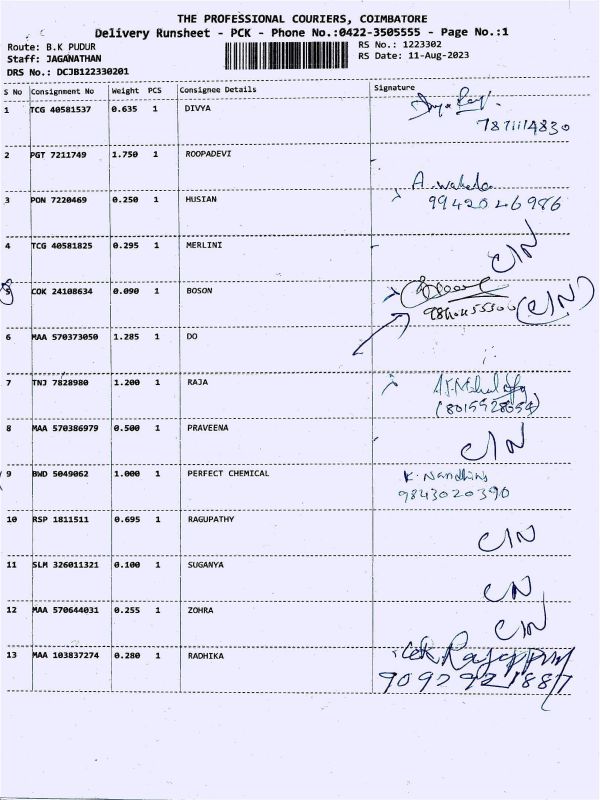 THE PROFESSIONAL COURIERS, COIMBATORE
Delivery Runsheet - PCK - Phone No.:0422-3505555 - Page No.:1
Route: B.K PUDUR
RS No.: 1223302
Staff: JAGANATHAN
RS Date: 11-Aug-2023
DRS No.: DCJB122330201
S No Consignment No Weight PCS Consignee Details Signature
1 TCG 40581537 0.635 1 DIVYA
7871114830
2 PGT 7211749 1.750 1 ROOPADEVI
A. 
3 PON 7220469 0.250 1 HUSIAN 9942046986
4 TCG 40581825 0.295 1 MERLINI C/N
5 COK 24108634 0.090 1 BOSON (C/N)
6 MAA 570373050 1.285 1 DO
7 TNJ 7828980 1.200 1 RAJA
8 MAA 570386979 0.500 1 PRAVEENA C/N
9 BWD 5049062 1.000 1 PERFECT CHEMICAL K. Nandhini
9843020390
10 RSP 1811511 0.695 1 RAGUPATHY C/N
11 SLM 326011321 0.100 1 SUGANYA CN
12 MAA 570644031 0.255 1 ZOHRA C/N
13 MAA 103837274 0.280 1 RADHIKA
9092921887